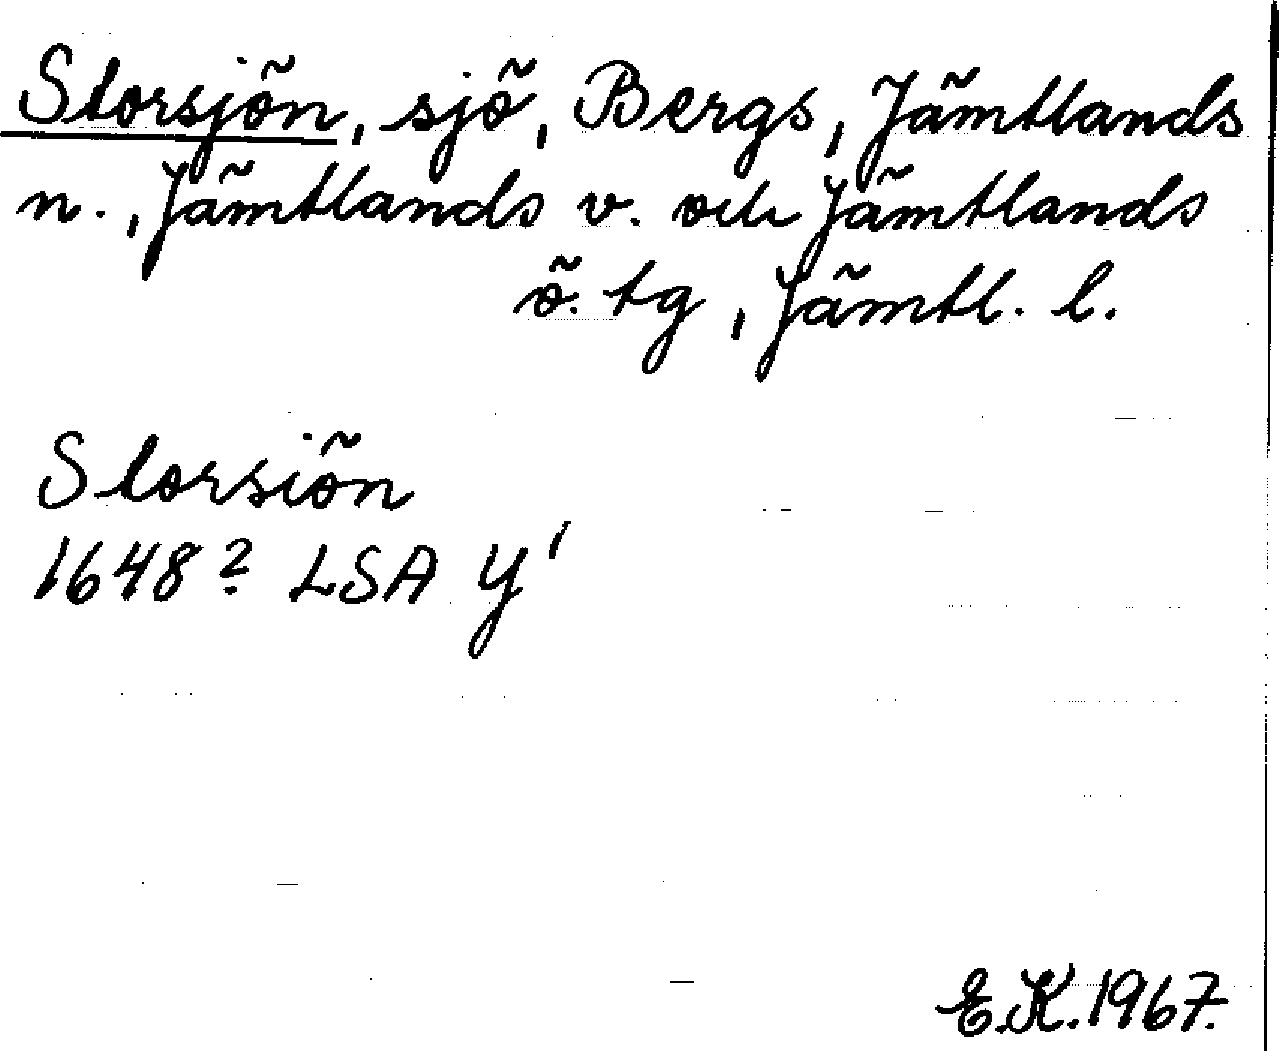 Storsjön, sjö, Bergs, Jämtlands
n., Jämtlands v. och Jämtlands
ö. tg, Jämtl. l.
Storsiön
1648? LSA Y'
E.K. 1967.